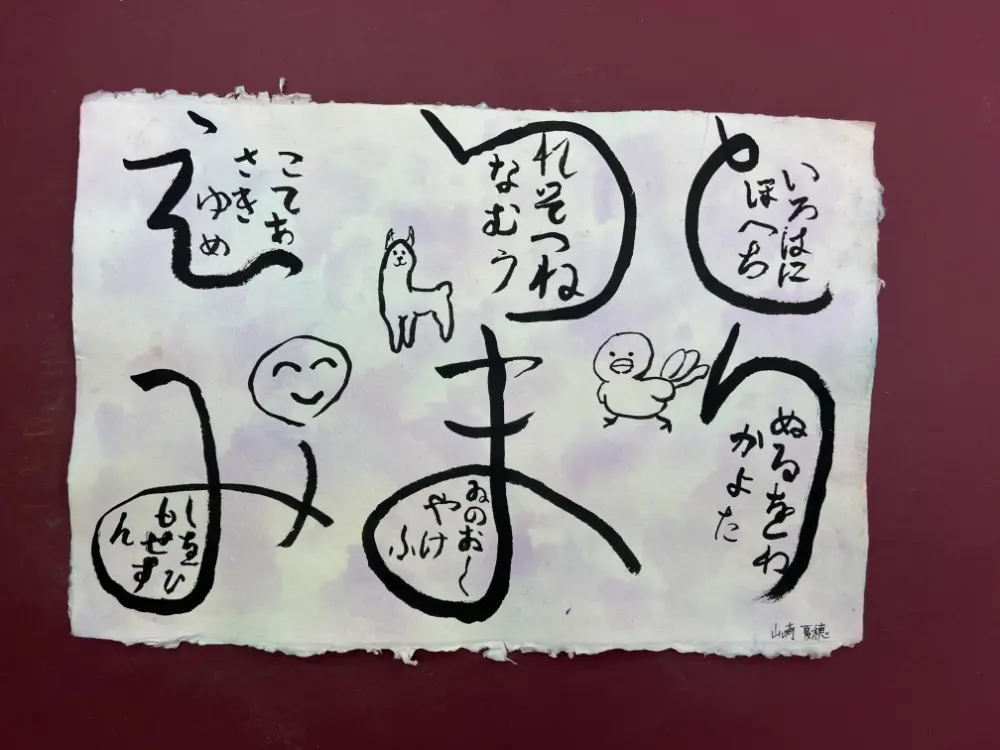 と
いろはに
ほへち
り
ぬるをわ
かよた
ら
れそつね
なむう
ま
ゐのおく
やけ
ふ
え
こてあ
さき
ゆめ
み
しゑひ
もせす
ん
山崎